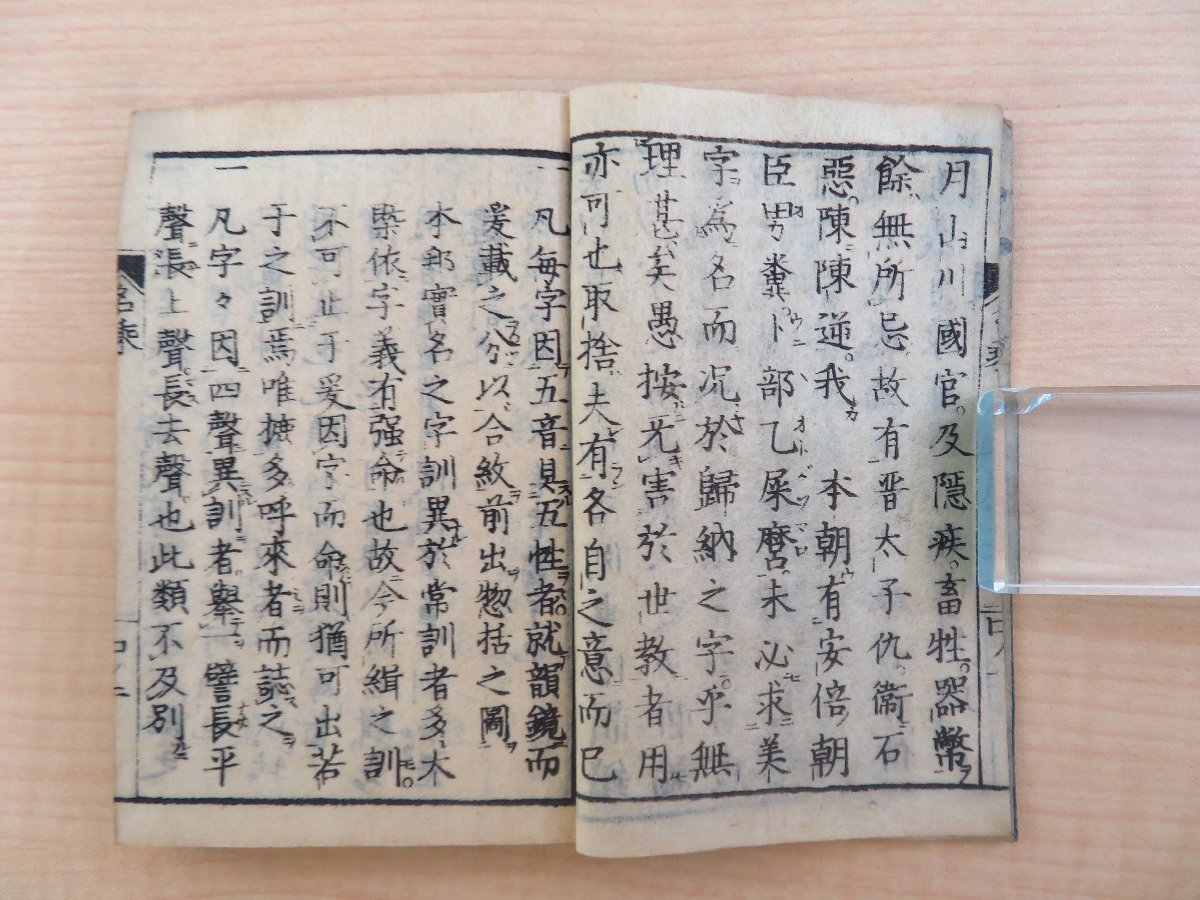 月山川國官及隱疾畜牲器幣
餘無所忌故有晋太子仇衞石
惡陳陳逆我 本朝有安倍朝
臣男糞卜部乙屎麿未必求美
字爲名而况於歸納之字乎無
理甚矣愚按尤害於世教者用
亦可也取捨夫有各自之意而已
一凡每字因五音具五性者就韻鏡而
爰載之分以合紋前出惣括之圖
本邦實名之字訓異於常訓者多大
槩依字義有强命也故今所緝之訓
不可止于爰因字而命則猶可出若
于之訓焉唯摭多呼來者而誌之
一凡字々因四聲異訓者擧一譬長平
聲張上聲長去聲也此類不及別
名乗